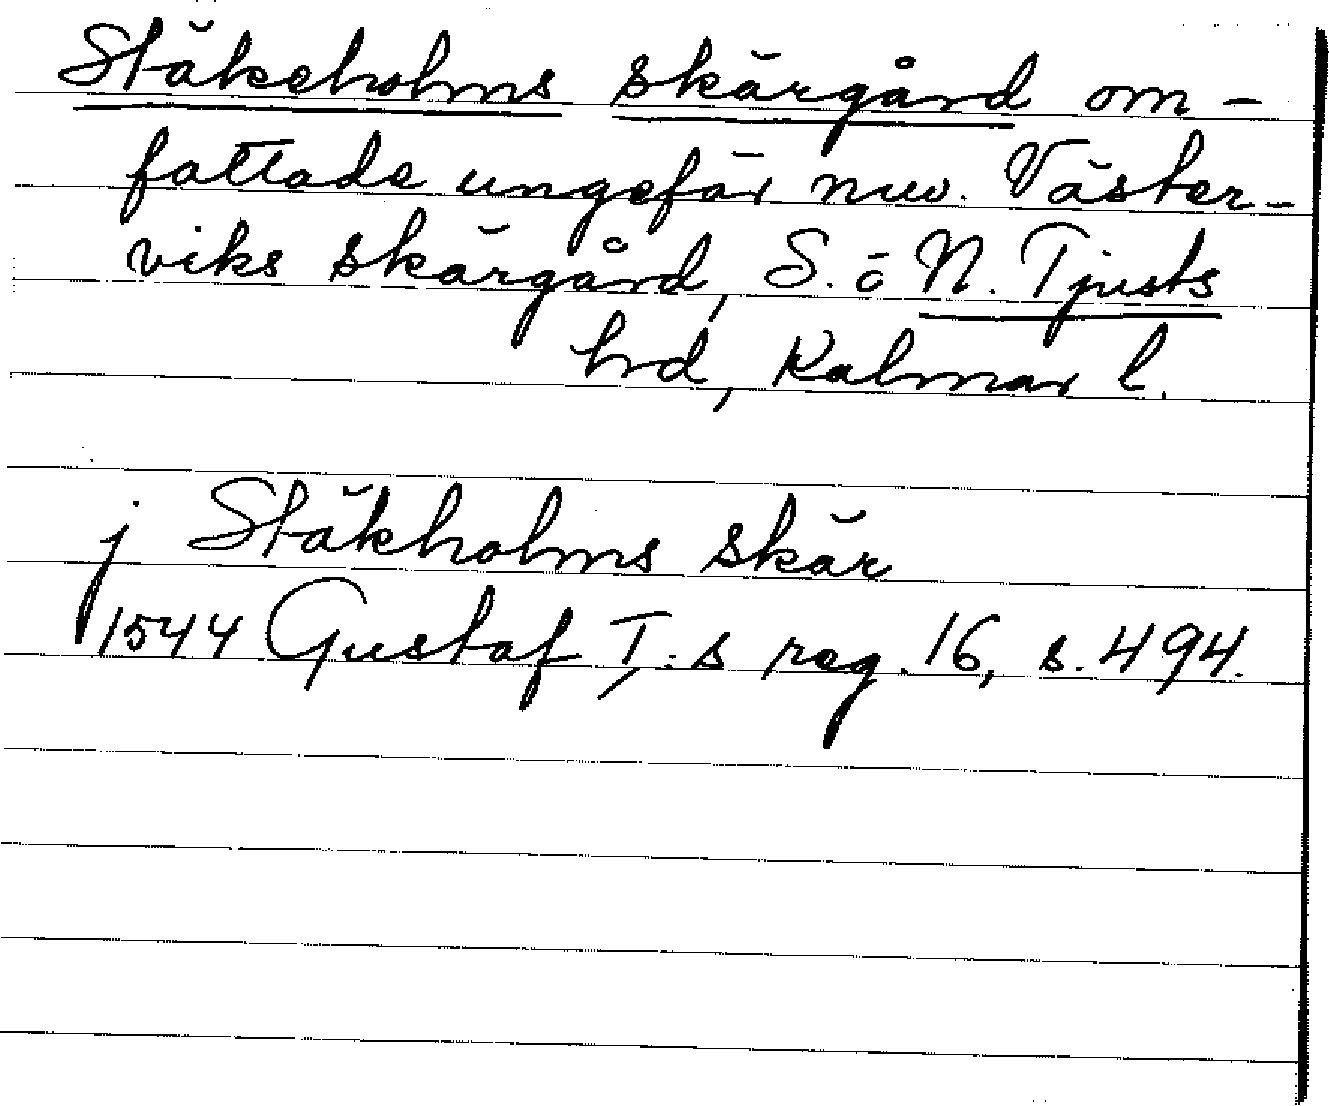 Stäkeholms skärgård om-
fattade ungefär nuv. Väster-
viks skärgård, S. o N. Tjusts
hrd, Kalmar l.
j Stäkholms skär
1544 Gustaf I:s reg. 16, s. 494.